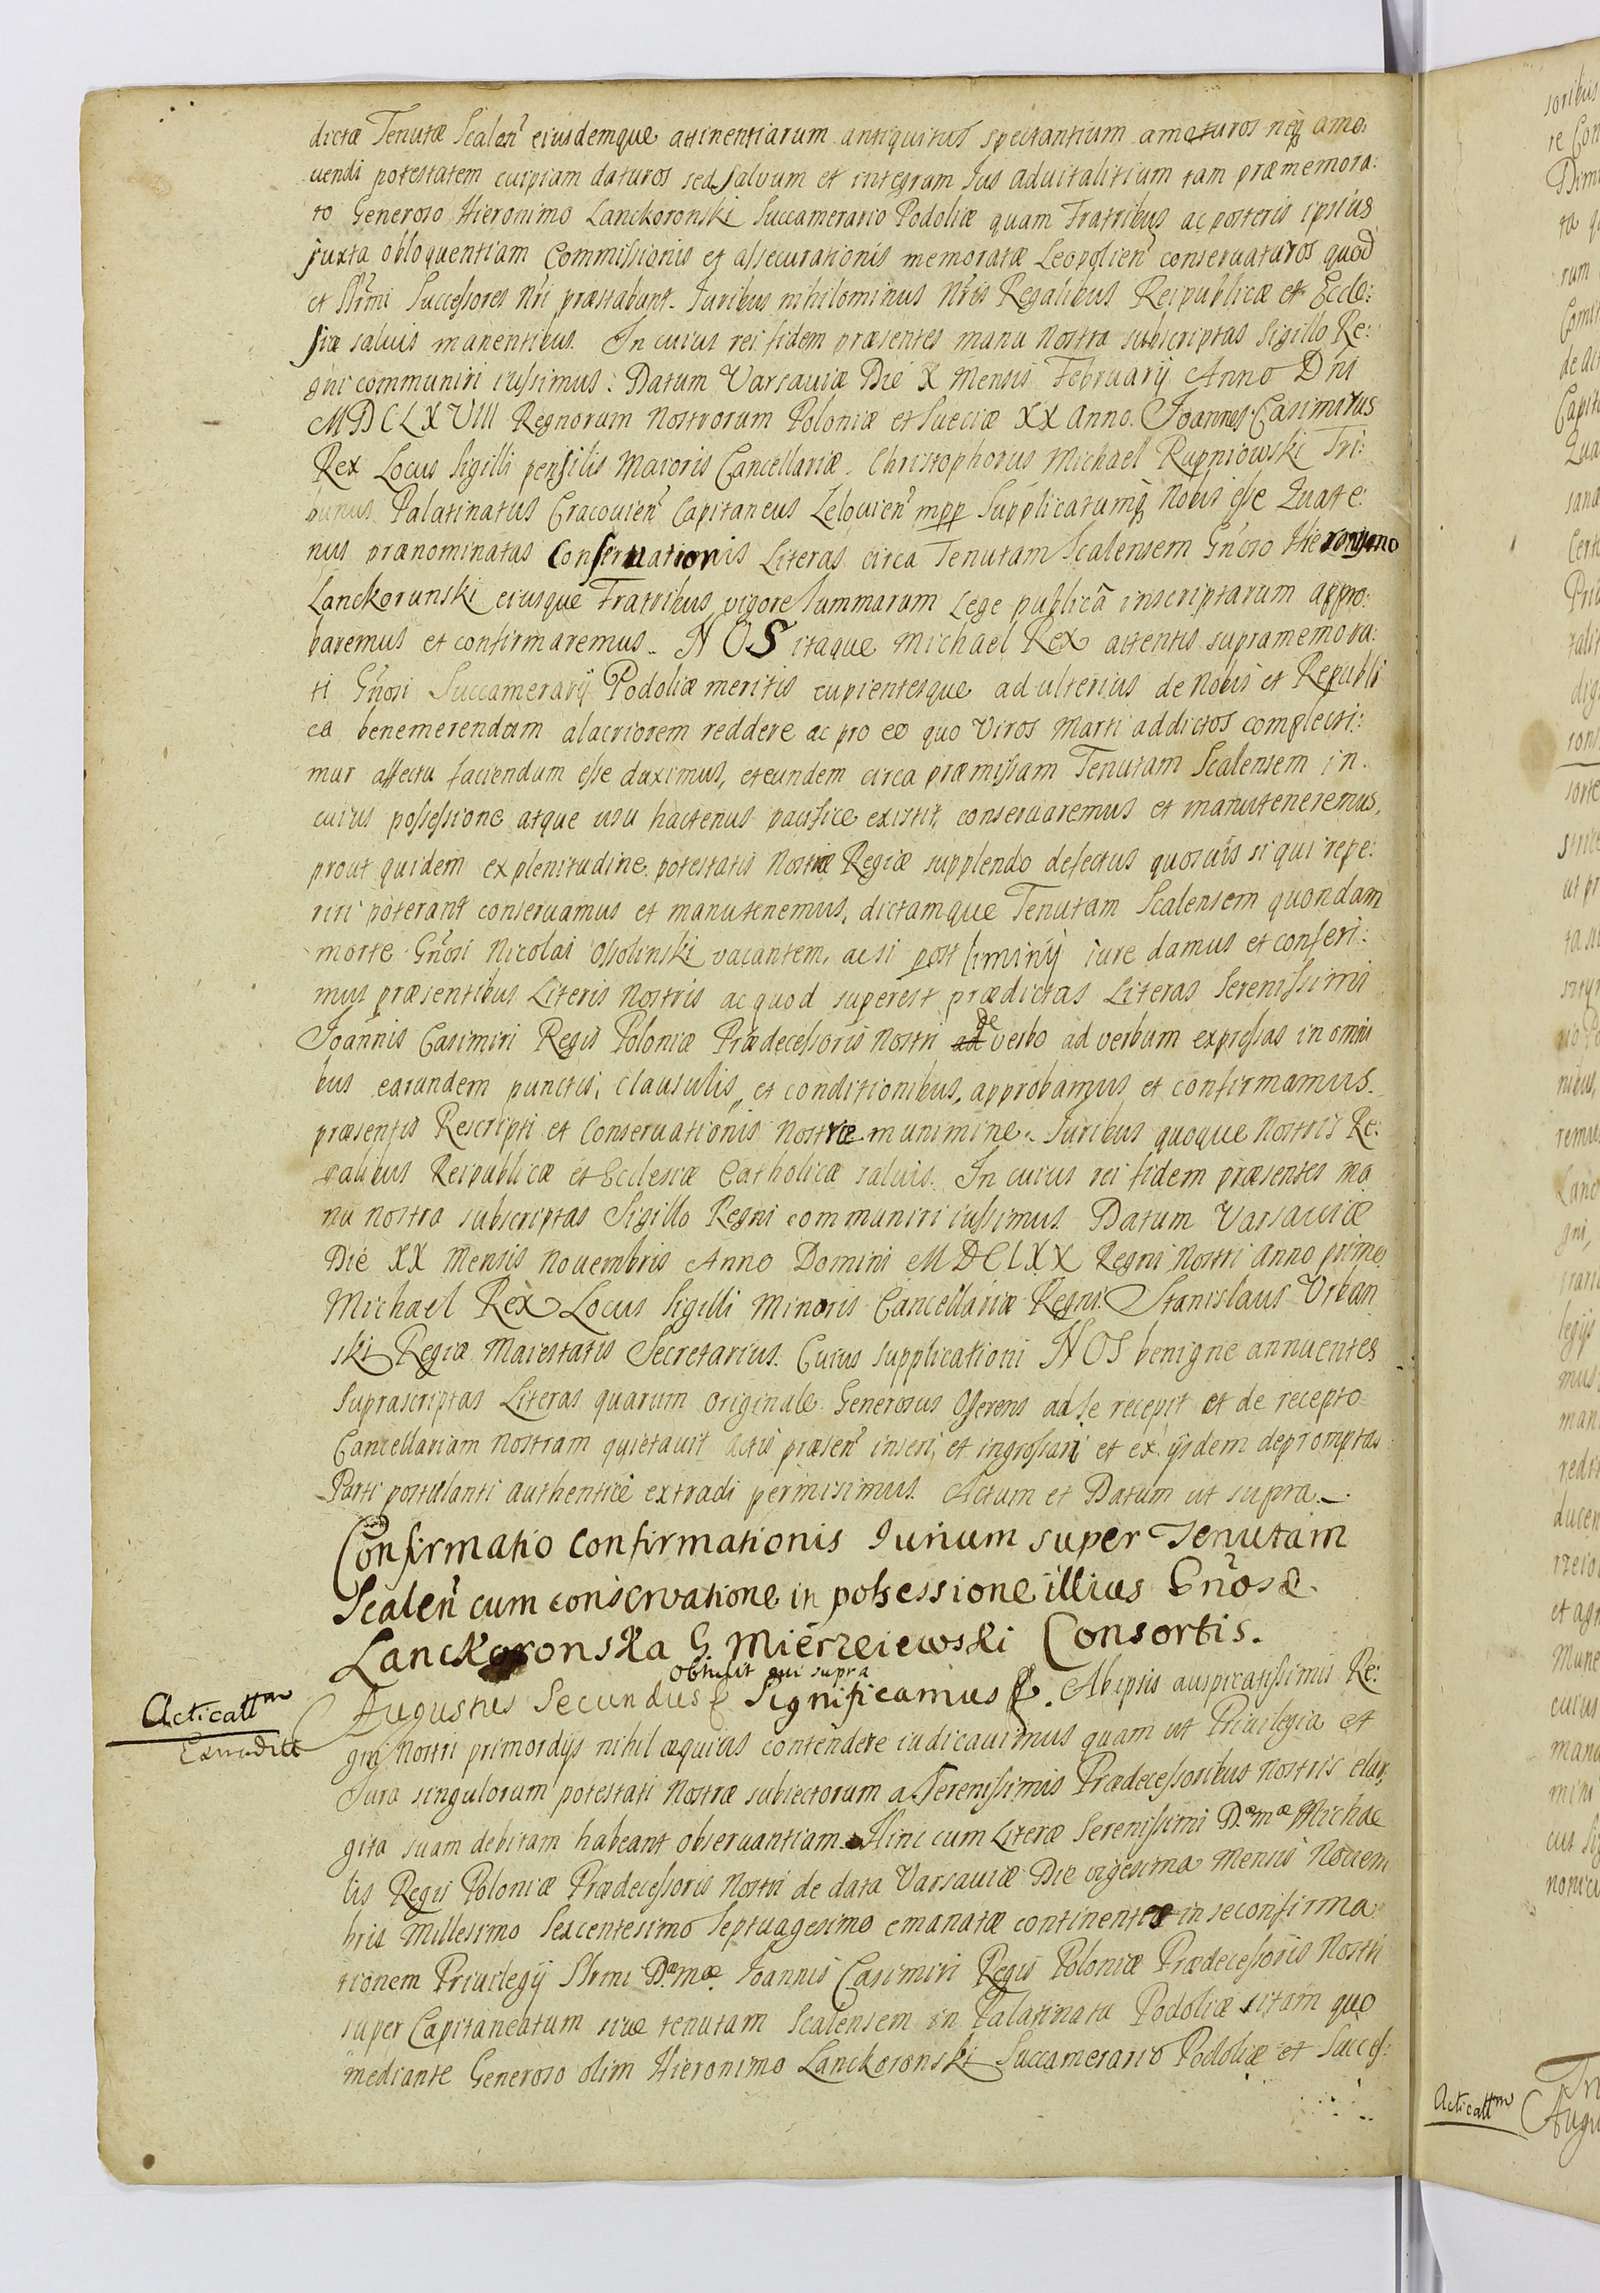 dictæ Tenutæ Scalen̄ eiusdemque attinentiarum antiquitus spectantium amoturos neq̨ amo:
uendi potestatem cuipiam daturos sed saluum et integrum Ius aduitalitium tam præmemora:
to Generoso Hieronimo Lanckoronski Succamerario Podoliæ quam Fratribus ac posteris ipsius
juxta obloquentiam Commissionis et assecurationis memoratæ Leopolien̄ conseruaturos quod
et Sr̄mi Successores Nr̄i præstabunt. Iuribus nihilominus Nr̄is Regalibus Reipublicæ et Eccle:
siæ saluis manentibus. In cuius rei fidem præsentes manu Nostra subscriptas Sigillo Re:
gni communiri iussimus. Datum Varsauiæ Die X Mensis Februarij Anno Dn̄i
MDCLXVIII Regnorum Nostrorum Poloniæ et Sueciæ XX Anno. Joannes Casimirus
Rex Locus Sigilli pensilis Maioris Cancellariæ. Christophorus Michael Rupniowski Tri:
bunus Palatinatus Cracouien̄ Capitaneus Zelouien̄ mpp Supplicatumq̨ Nobis esse Quate:
nus prænominatas Conseruationis Literas circa Tenutam Scalensem Gn̄oso Hieronymo
Lanckorunski eiusque Fratribus vigore summarum Lege publicâ inscriptarum appro:
baremus et confirmaremus. NOS itaque Michael Rex attentis supramemora:
ti Gn̄osi Succamerarij Podoliæ meritis cupientesque ad ulterius de Nobis et Republi
ca benemerendum alacriorem reddere ac pro eo quo Viros Marti addictos complecti:
mur affectu faciendum esse duximus, et eundem circa præmissam Tenutam Scalensem in
cuius possessione atque usu hactenus pacifice existit, conseruaremus et manuteneremus,
prout quidem ex plenitudine potestatis Nostræ Regiæ supplendo defectus quosuis si qui repe:
riri poterant conseruamus et manutenemus, dictamque Tenutam Scalensem quondam
morte Gn̄osi Nicolai Ossolinski vacantem, ac si post liminij iure damus et conferi:
mus præsentibus Literis Nostris ac quod superest prædictas Literas Serenissimi
Joannis Casimiri Regis Poloniæ Prædecessoris Nostri ad de verbo ad verbum expressas in omni
bus earundem punctis, clausulis, et conditionibus, approbamus et confirmamus.
præsentis Rescripti et Conseruationis Nostræ munimine. Iuribus quoque Nostris Re:
galibus Reipublicæ et Ecclesiæ Catholicæ saluis. In cuius rei fidem præsentes ma
nu nostra subscriptas Sigillo Regni communiri iussimus Datum Varsauiæ
Die XX Mensis Nouembris Anno Domini MDCLXX Regni Nostri Anno primo
Michael Rex Locus Sigilli Minoris Cancellariæ Regni. Stanislaus Urban
ski Regiæ Maiestatis Secretarius. Cuius supplicationi NOS benigne annuentes
suprascriptas Literas quarum originale Generosus Offerens ad se recepit et de recepto
Cancellariam nostram quietauit Actis præsen̄ inseri, et ingrossari et ex ijsdem depromptas
Parti postulanti authenticè extradi permisimus. Actum et Datum ut supra.
Confirmatio confirmationis Iurium super Tenutam
Scalen̄ cum conservatione in possessione illius Gn̄osæ
Lanckoronska G. Mierzeiewski Consortis.
Obtulit qui supra
Acticatt̄m
Extraditt
Augustus Secundus & Significamus &. Ab ipsis auspicatissimis Re:
gni Nostri primordijs nihil æquius contendere iudicauimus quam ut Priuilegia et
Jura singulorum potestati Nostræ subiectorum a Serenissimis Prædecessoribus nostris elar,
gita suam debitam habeant obseruantiam. Hinc cum Literæ Serenissimi D.mæ Michae
lis Regis Poloniæ Prædecessoris Nostri de data Varsauiæ Die vigesima Mensis Nouem
bris Millesimo Sexcentesimo Septuagesimo emanatæ continentes in se confirma
tionem Priuilegij Sr̄mi D.mæ. Joannis Casimiri Regis Poloniæ Prædecessoris Nostri
super Capitaneatum siue tenutam Scalensem in Palatinatu Podoliæ sitam quo
mediante Generoso olim Hieronimo Lanckoronski Succamerario Podoliæ et Succes:
Acticatt̄m